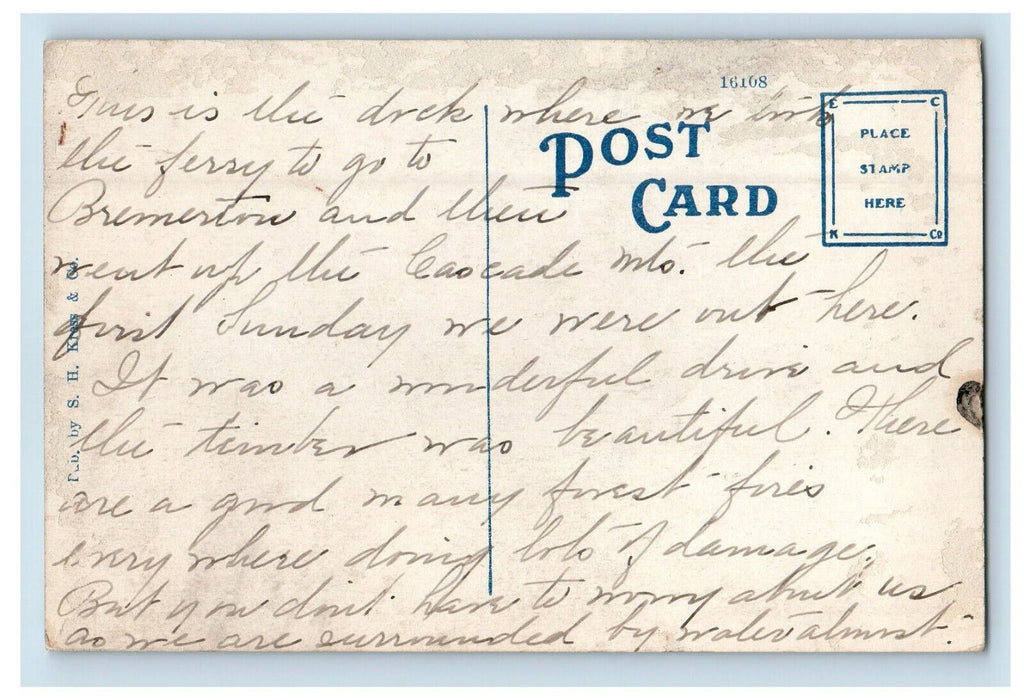 16108
This is the dock where we took
the ferry to go to
Bremerton and then
went up the Cascade Mts. the
first Sunday we were out here.
It was a wonderful drive and
the timber was beautiful. There
are a good many forest fires
every where doing lots of damage.
But you don't have to worry about us
as we are surrounded by water almost.
POST
CARD
E C
PLACE
STAMP
HERE
K Co
Pub. by S. H. Kress & Co.